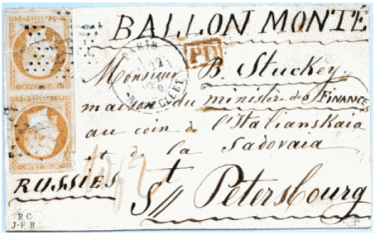 BALLON MONTÉ
PARIS
PD
Monsieur B. Stuckey
maison du ministère des FINANCES
au coin de l'Italianskaia
et de la Sadovaia
RUSSIES
St Petersbourg